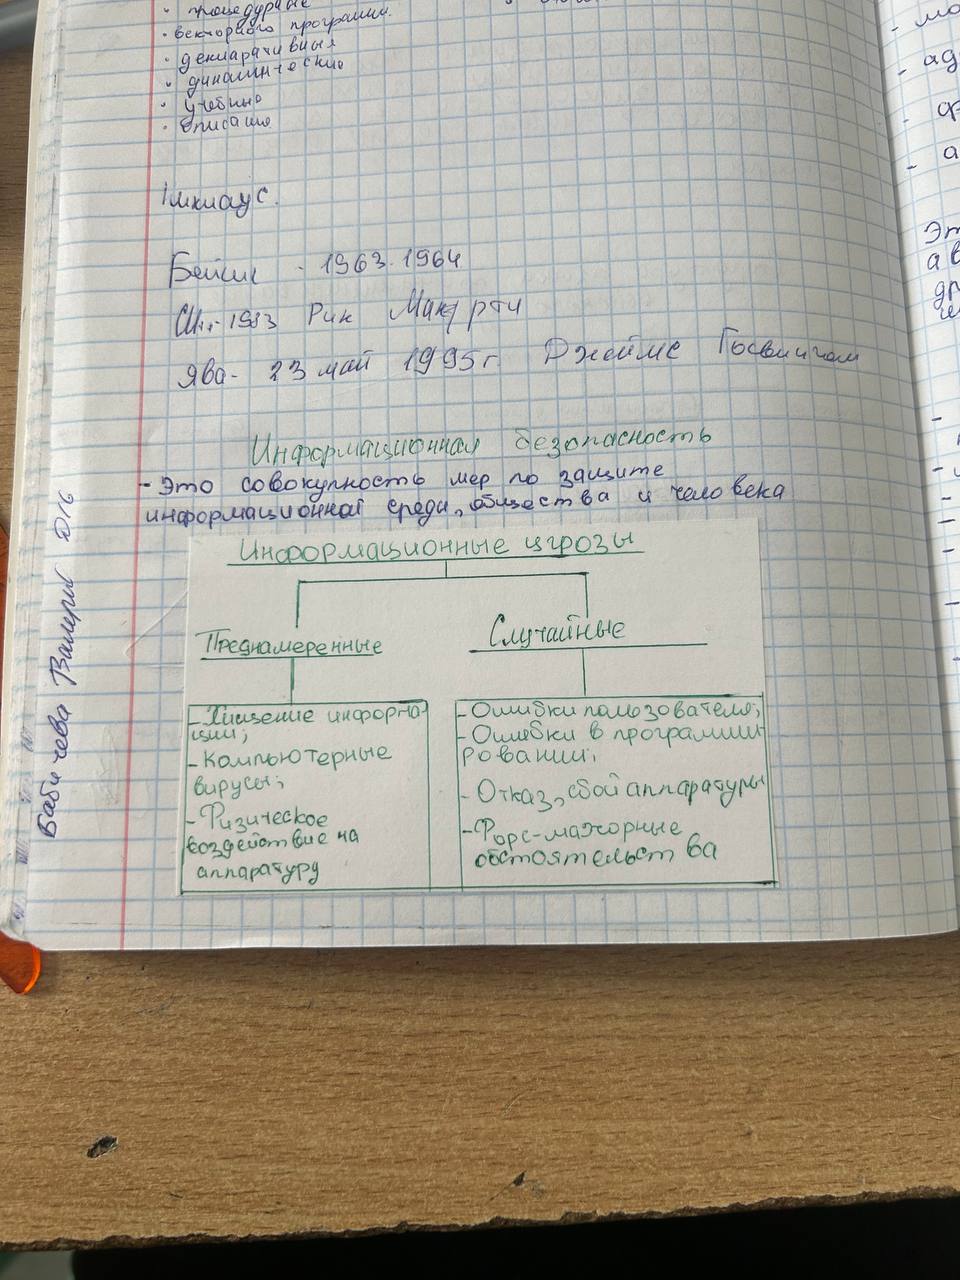 процедурные
· векторного программ.
· декларативный
· динамическию
· учебные
· Описание
Бейсик - 1963. 1964
1983 Рик Макарти
Ява - 23 май 1995 г. Джеймс
Информационная безопасность
- Это совокупность мер по защите
информационной среды, общества и человека
Информационные угрозы
Преднамеренные
Случайные
- Хищение информа-
ции;
- Компьютерные
вирусы;
- Физическое
воздействие на
аппаратуру
- Ошибки пользователя;
- Ошибки в программи
ровании;
- Отказ, сбой аппаратуры
- Форс-мажорные
обстоятельства
Бабичева Валерия D16